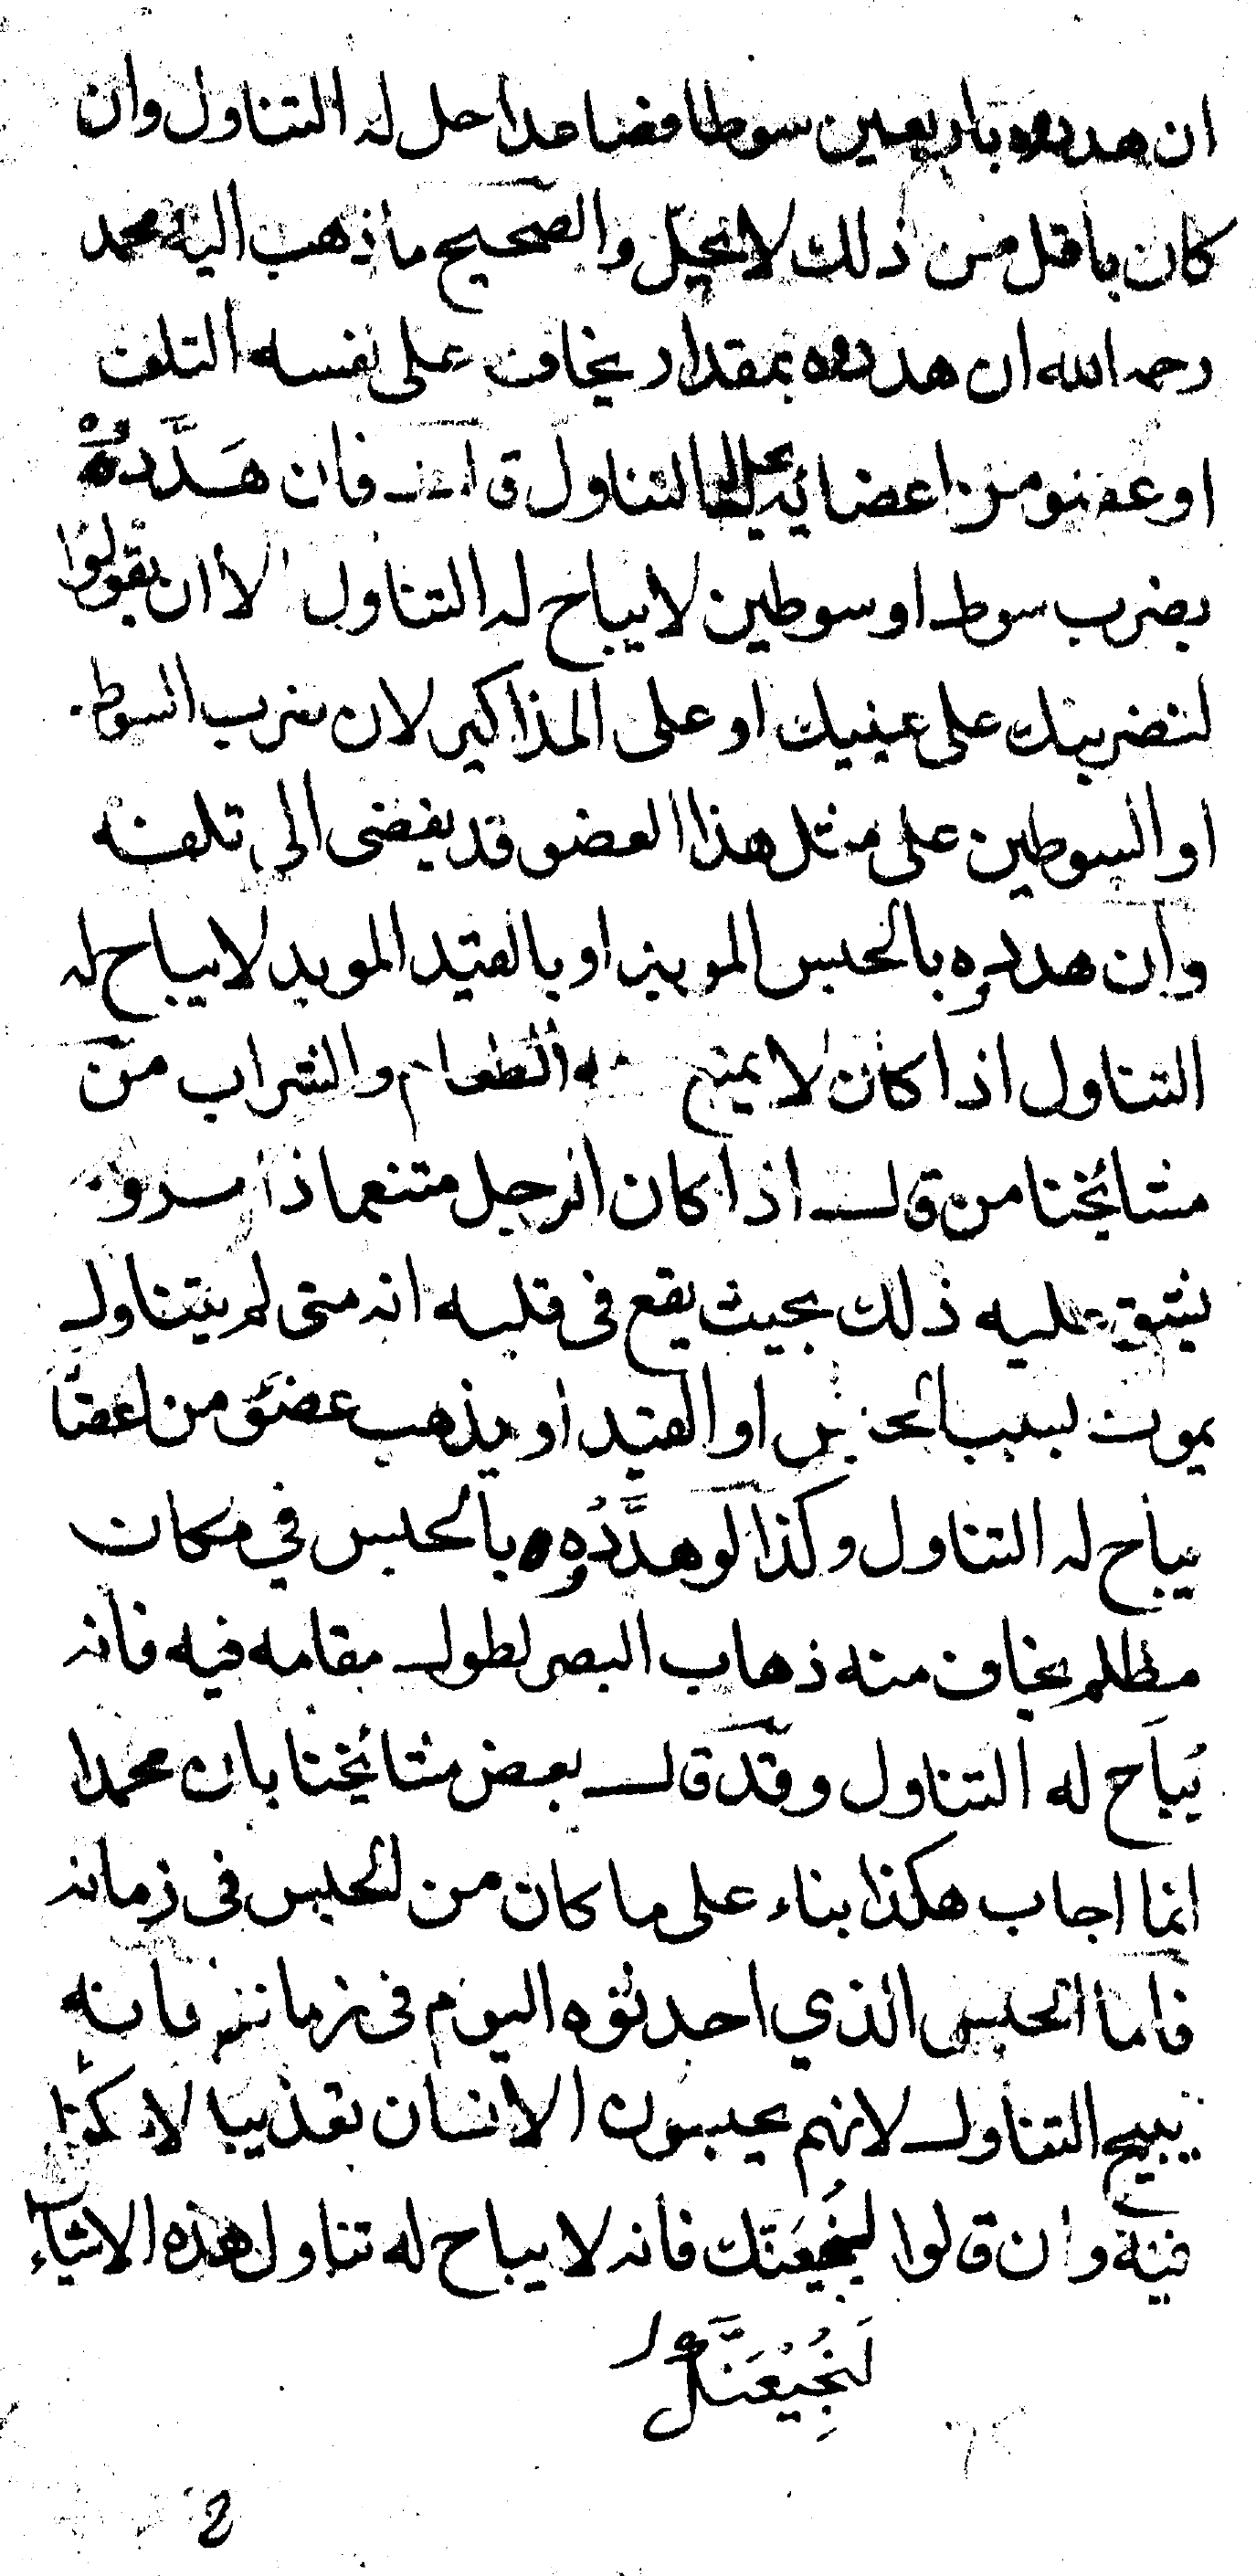 ان هددوه باربعين سوطا فصاعدا حل له التناول وان
كان باقل من ذلك لا يحل والصحيح ما ذهب اليه محمد
رحمه الله ان هددوه بمقدار يخاف على نفسه التلف
او عضو من اعضائه يحل له التناول قال فان هَدَّدُوْهُ
بضرب سوط او سوطين لا يباح له التناول الا ان يقولوا
لنضربنك على عينيك او على المذاكير لان ضرب السوط
او السوطين على مثل هذا العضو قد يفضى الى تلفه
وان هددوه بالحبس المويد او بالقيد المويد لا يباح له
التناول اذا كان لا يمنع الطعام والشراب من
مشائخنا من قال اذا كان الرجل متنعما ذا مروة
يشق عليه ذلك بحيث يقع فى قلبه انه متى لم يتناول
يموت بسبب الحبس او القيد او يذهب عضو من اعضا
يباح له التناول وكذا لو هدَّدُوه بالحبس في مكان
مظلم يخاف منه ذهاب البصر لطول مقامه فيه فانه
يُباح له التناول وقد قال بعض مشائخنا بان محمدا
انما اجاب هكذا بناء على ما كان من الحبس فى زمانه
فاما الحبس الذي احدثوه اليوم فى زماننا فانه
يبيح التناول لانهم يحبسون الانسان تعذيبا لا
فيه وان قالوا لنُجِيْعَنَّك فانه لا يباح له تناول هذه الاشياء
لَنُجِيْعَنَّكَ